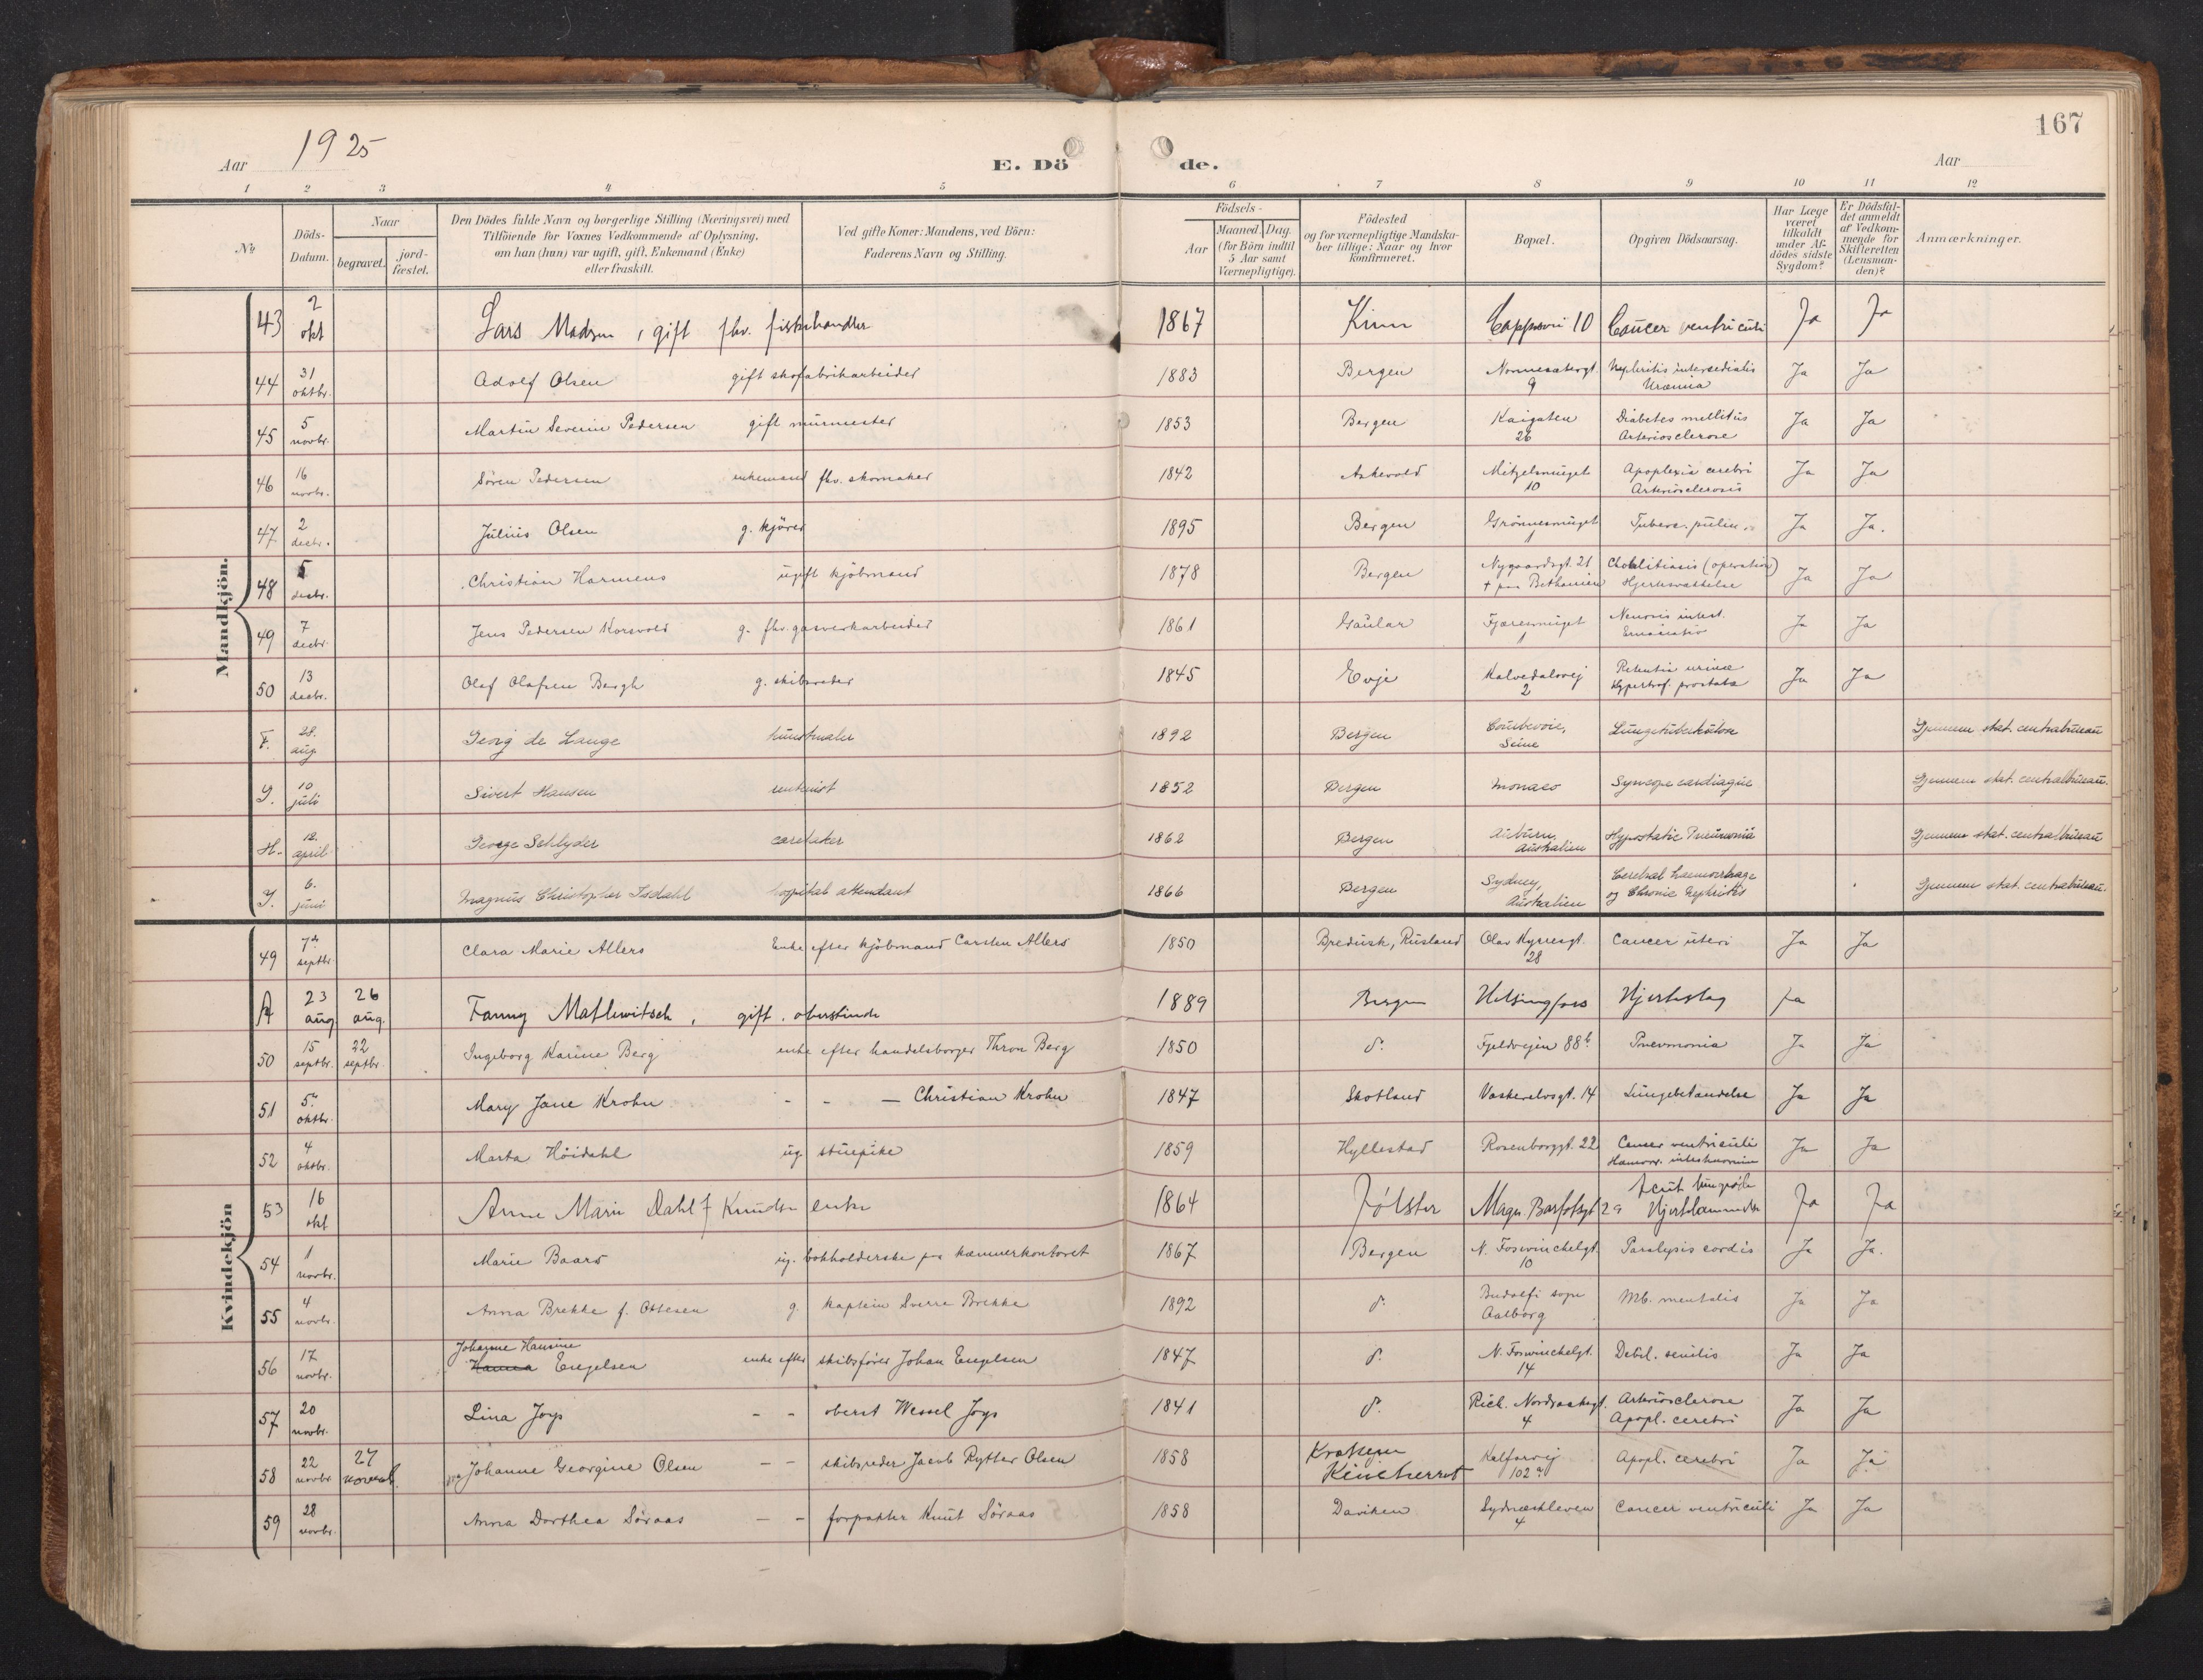 167
Aar 1925
E. Döde.
Aar
1 2 3 4 5 6 7 8 9 10 11 12
№
Döds-Datum.
Naar
begravet. jord-fæstet.
Den Dödes fulde Navn og borgerlige Stilling (Næringsvei) med
Tilföiende for Voxnes Vedkommende af Oplysning,
om han (hun) var ugift, gift, Enkemand (Enke)
eller fraskilt.
Ved gifte Koner: Mandens, ved Börn:
Faderens Navn og Stilling.
Födsels-
Aar
Maaned. Dag.
(for Börn indtil
5 Aar samt
Værnepligtige).
Födested
og for værnepligtige Mandska-
ber tillige: Naar og hvor
konfirmeret.
Bopæl.
Opgiven Dödsaarsag.
Har Læge
været
tilkaldt
under Af-
dödes sidste
Sygdom?
Er Dödsfal-
det anmeldt
af Vedkom-
mende for
Skifteretten
(Lensman-
den)?
Anmærkninger.
Mandkjön.
43 2 okt Lars Madsen, gift fhv. fiskehandler 1867 Kinn 10 Cancer ventriculi Ja Ja
44 31 oktbr. Adolf Olsen gift skofabrikarbeider 1883 Bergen 9 Ja Ja
45 5 novbr. Martin Severin Pedersen gift murmester 1853 Bergen Kaigaten 26 Diabetes mellitus Arteriosclerose Ja Ja
46 16 novbr. Sören Pedersen enkemand fhv. skomaker 1842 Askevold Mitzelsmuget 10 Apoplexia cerebri Arteriosclerosis Ja Ja
47 2 decbr. Julius Olsen g. kjörer 1895 Bergen Grönnesmuget 1 Tuberc. pulm. Ja Ja.
48 5 decbr. Christian Harmens ugift kjöbmand 1878 Bergen Nygaardsgt. 21 + paa Bethanien Cholelitiasis (operation) Hjertelammelse Ja Ja
49 7 decbr. Jens Pedersen Korsvold g. fhv. gasverkarbeider 1861 Gaular Fjæresmuget 1 Ja Ja
50 13 decbr. Olaf Olafsen Bergh g. skibsreder 1845 Evje Kalvedalsvej 2 Retentio urinæ Hypertrof. prostata Ja Ja
F. 28. aug Georg de Lange kunstmaler 1892 Bergen Courbevoie, Seine Lungetuberkulose Gjennem stat. centralbureau
G. 10 juli Sivert Hansen rentenist 1852 Bergen Monaco Syncope cardiaque Gjennem stat. centralbureau.
H. 12. april George Schlyder caretaker 1862 Bergen Auburn, Australien Hypostatic Pneumonia Gjennem stat. centralbureau
I. 6. juni Magnus Christopher Isdahl hospital attendant 1866 Bergen Sydney, Australien Cerebral haemorrhage og Chronic Nephritis Gjennem stat. centralbureau.
Kvindekjön
49 7de septbr. Clara Marie Allers Enke efter kjöbmand Carsten Allers 1850 Bredusk, Rusland Olav Kyrresgt. 28 Cancer uteri Ja Ja
A 23 aug 26 aug. Fanny Mathewitsch, gift. oberstinde 1889 Bergen Helsingfors Hjerteslag Ja
50 15 septbr. 22 septbr Ingeborg Karine Berg enke efter handelsborger Thron Berg 1850 d: Fjeldvejen 88b Pnevmonia Ja Ja
51 5te oktbr. Mary Jane Krohn - - — Christian Krohn 1847 Skotland Vaskerelvsgt. 14 Lungebetændelse Ja Ja
52 4 oktbr. Marta Höidahl ug. stuepike 1859 Hyllestad Rosenborggt. 22 Cancer ventriculi Ja Ja
53 16 okt Anne Marie Dahl f Knudsen enke 1864 Jölster Magn. Barfotsgt 2a Acut Hjertelammelse Ja Ja
54 1 novbr. Marie Baars ug. bokholderske paa kæmnerkontoret 1867 Bergen N. Foswinckelgt. 10 Paralysis cordis Ja Ja.
55 4 novbr. Anna Brekke f. Ottesen g. kaptein Sverre Brekke 1892 d: Budolfi sogn Aalborg Mb. mentalis Ja Ja
56 17 novbr. Johanne Hansine Hanna Engelsen enke efter skibsförer Johan Engelsen 1847 d: N. Foswinckelgt. 14 Debil. senilis Ja Ja
57 20 novbr. Lina Joys - - oberst Wessel Joys 1841 d: Rich. Nordraaksgt. 4 Arteriosclerose Apopl. cerebri Ja Ja
58 22 novbr 27 novemb. Johanne Georgine Olsen - - skibsreder Jacob Rytter Olsen 1858 Kineherred Kalfarvej 102a Apopl. cerebri Ja Ja
59 28 novbr. Anna Dorthea Söraas - - forpakter Knut Söraas 1858 Daviken Sydneskleven 4 Cancer ventriculi Ja Ja